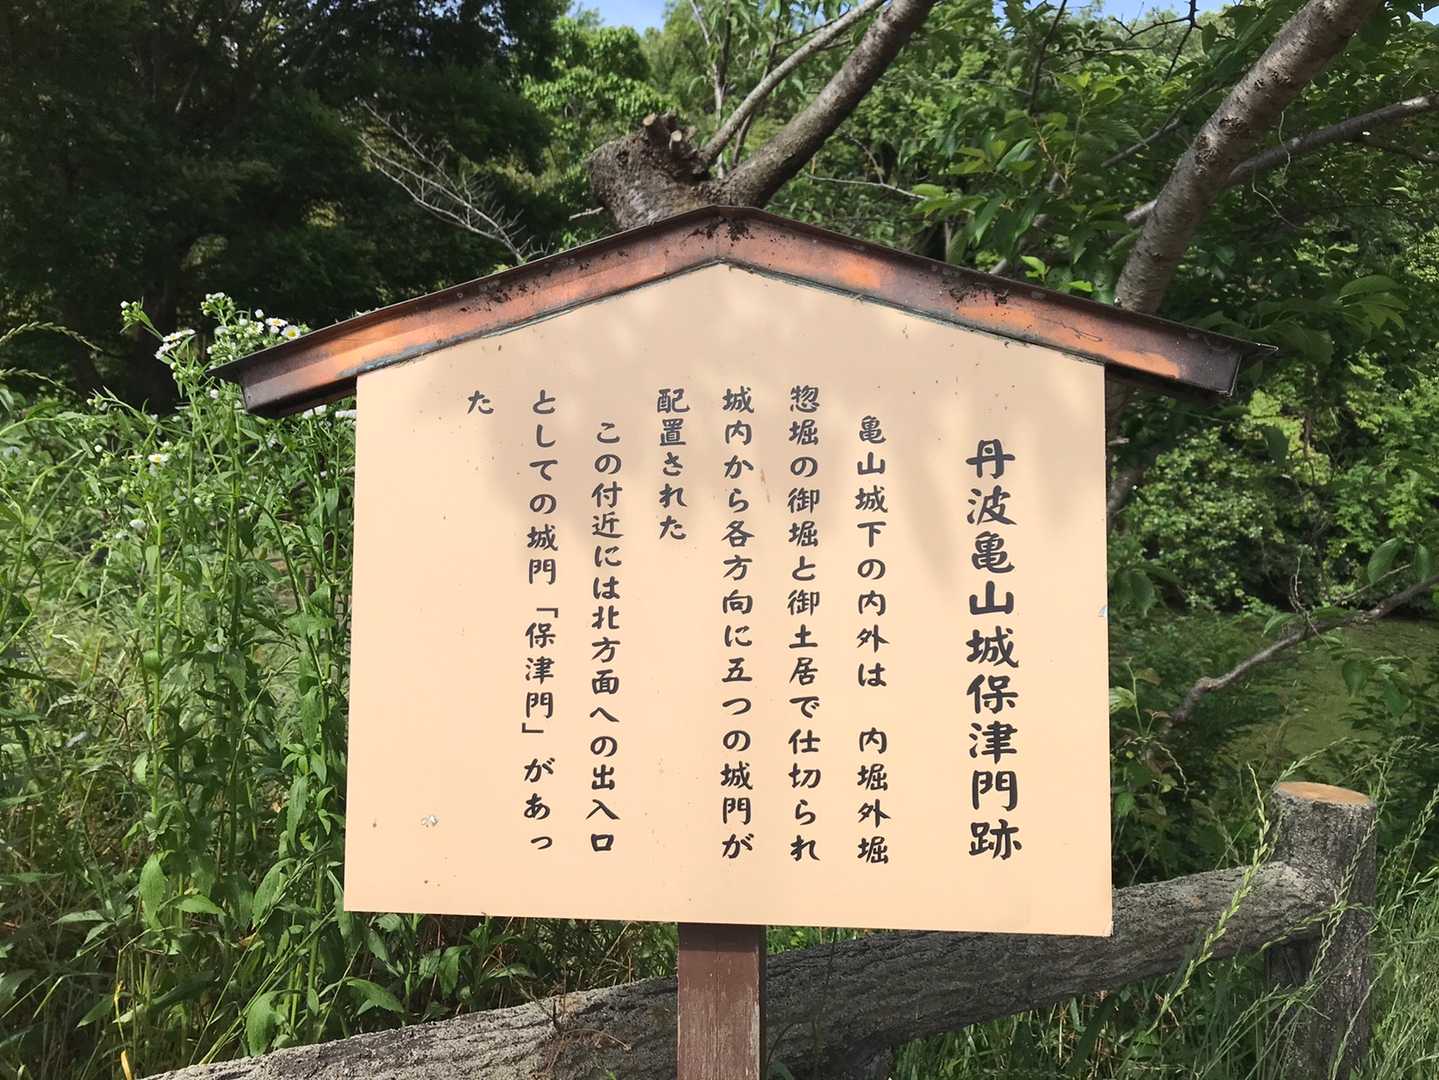 丹波亀山城保津門跡
亀山城下の内外は　内堀外堀
惣堀の御堀と御土居で仕切られ
城内から各方向に五つの城門が
配置された
この付近には北方面への出入口
としての城門「保津門」があっ
た